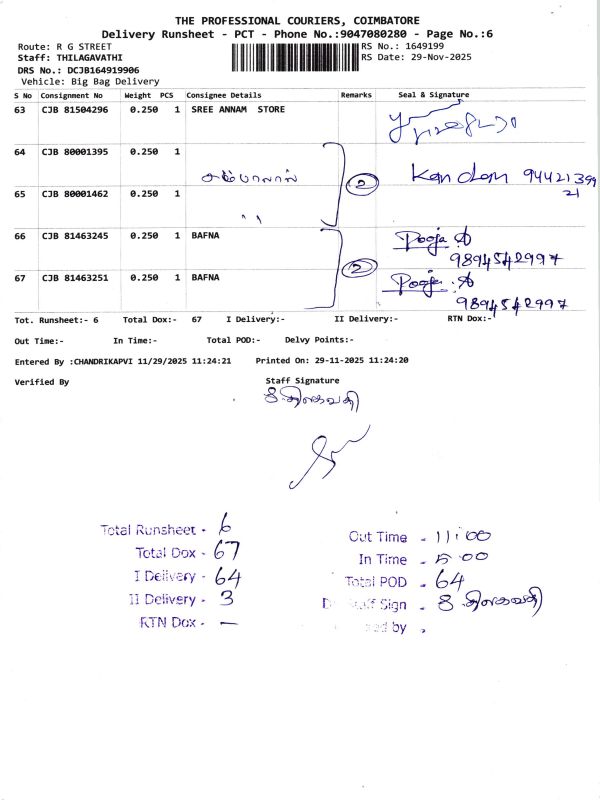 THE PROFESSIONAL COURIERS, COIMBATORE
Delivery Runsheet - PCT - Phone No.:9047080280 - Page No.:6
Route: R G STREET
RS No.: 1649199
Staff: THILAGAVATHI
RS Date: 29-Nov-2025
DRS No.: DCJB164919906
Vehicle: Big Bag Delivery
S No Consignment No Weight PCS Consignee Details Remarks Seal & Signature
63 CJB 81504296 0.250 1 SREE ANNAM STORE
64 CJB 80001395 0.250 1
சம்பாலால் 2 Kandan 94421399
21
65 CJB 80001462 0.250 1
" "
66 CJB 81463245 0.250 1 BAFNA Pooja
9894542997
2
67 CJB 81463251 0.250 1 BAFNA Pooja
9894542997
Tot. Runsheet:- 6 Total Dox:- 67 I Delivery:- II Delivery:- RTN Dox:-
Out Time:- In Time:- Total POD:- Delvy Points:-
Entered By :CHANDRIKAPVI 11/29/2025 11:24:21 Printed On: 29-11-2025 11:24:20
Verified By Staff Signature
சி.திலகவதி
Total Runsheet - 6
Total Dox - 67
I Delivery - 64
II Delivery - 3
RTN Dox - —
Out Time - 11:00
In Time - 5:00
Total POD - 64
Staff Sign - சி.திலகவதி
by